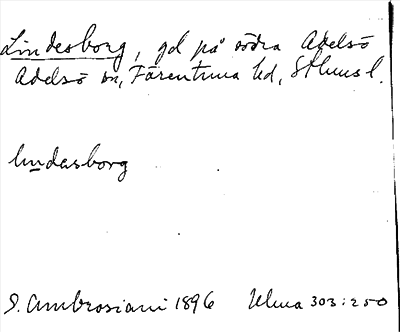 Lindesborg, gd på södra Adelsö
Adelsö sn, Färentuna hd, Sthms l.
lindasborg
S. Ambrosiani 1896 Ulma 303:250